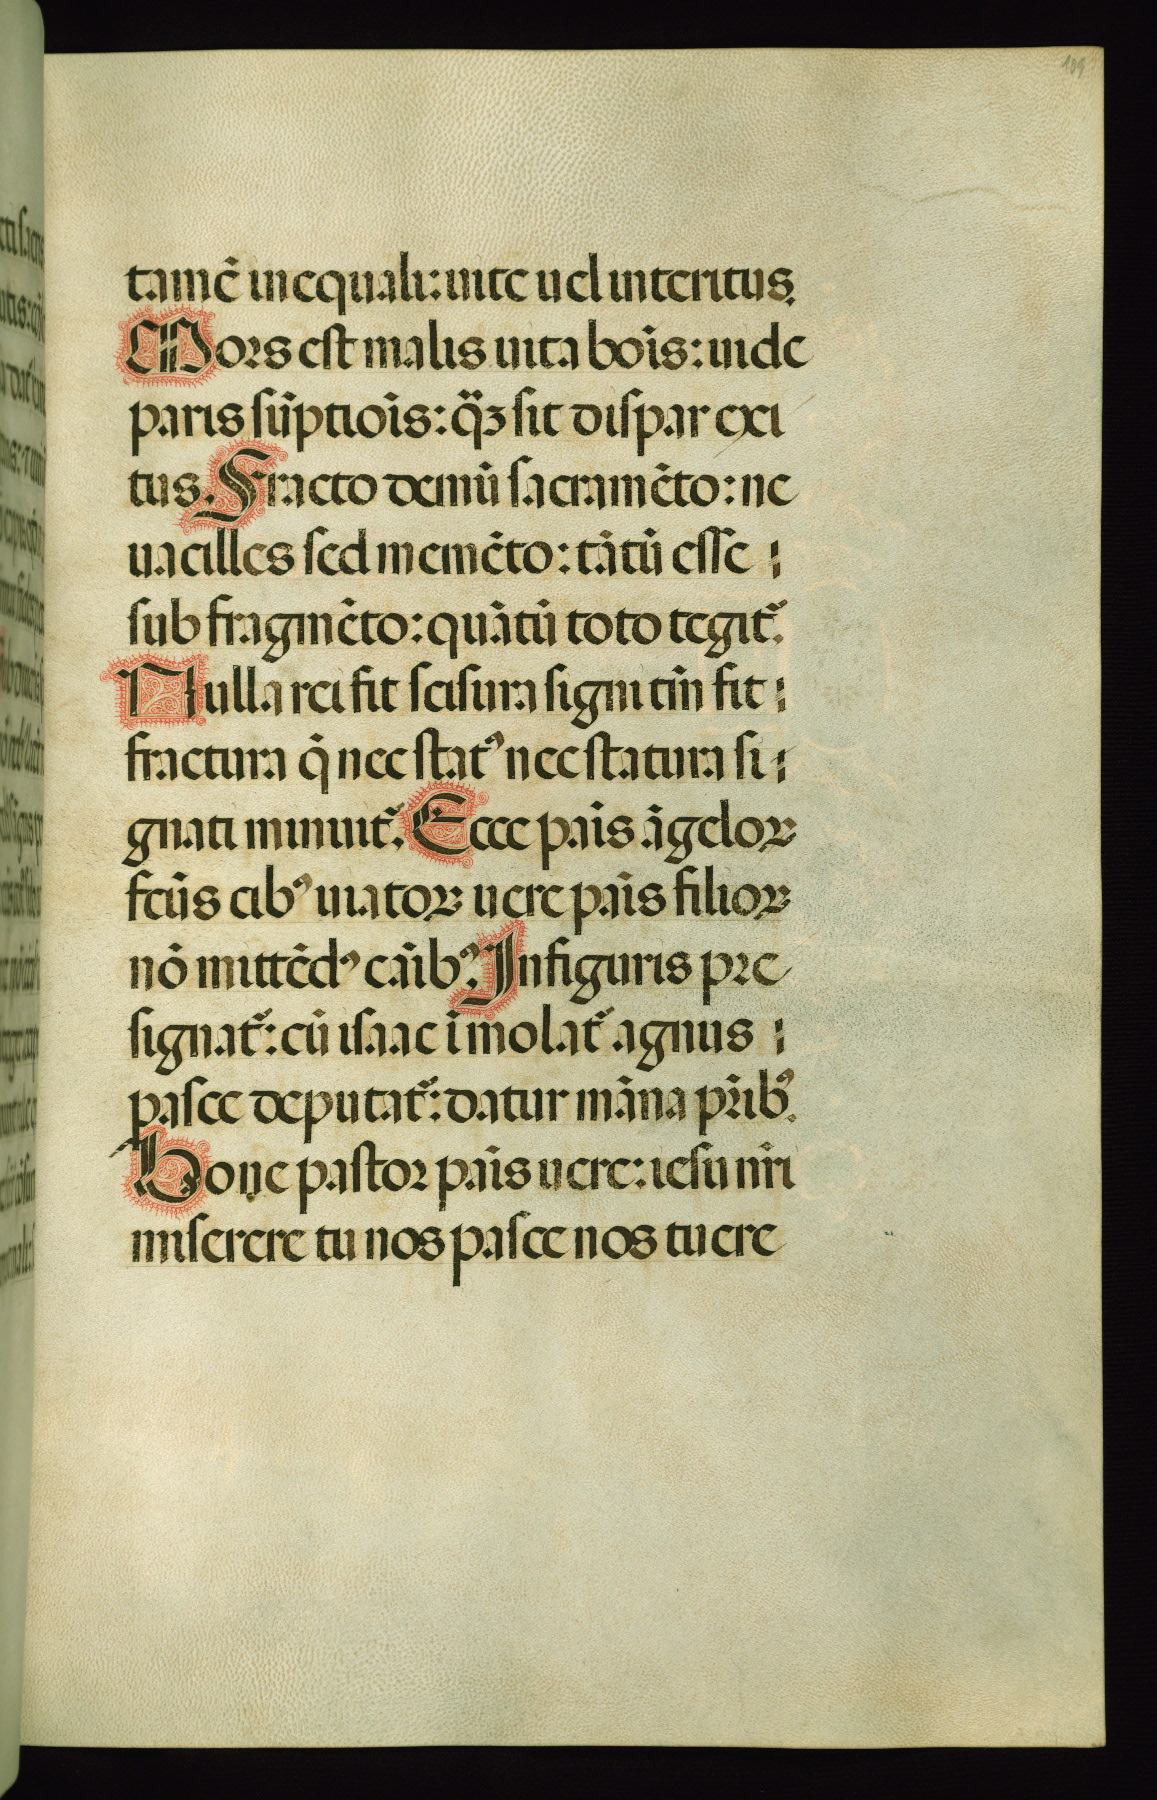 109
tamē inequali: uite uel interitus.
Mors est malis uita bōis: uide
paris sūptiōis: q̄ꝫ sit dispar exi
tus. Fracto demū sacramēto: ne
uacilles sed memēto: tātū esse
sub fragmēto: quātū toto tegit᷑.
Nulla rei fit scisura signi tm̄ fit
fractura q̄ nec stat᷒ nec statura si
gnati minuit᷑. Ecce pāis āgeloꝝ
fc̄us cib᷒ uiatoꝝ uere pāis filioꝝ
nō mittēd᷒ cāib᷒. In figuris pre
signat᷑: cū isaac īmolat᷑ agnus
pasce deputat᷑: datur māna pr̄ib᷒.
Bone pastor pāis uere: iesu nr̄i
miserere tu nos pasce nos tuere